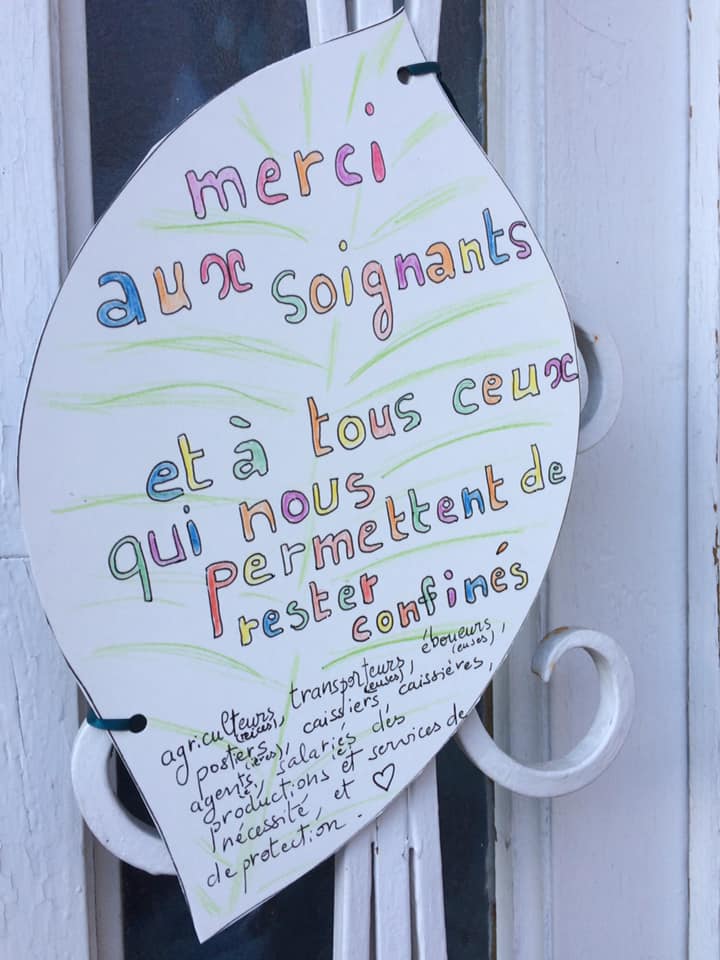 merci
aux soignants
et à tous ceux
qui nous
permettent de
rester confinés
agriculteurs (trices), transporteurs (euses), éboueurs (euses),
postiers (ières), caissiers, caissières,
agents, salariés des
productions et services de
nécessité, et
de protection. ♡